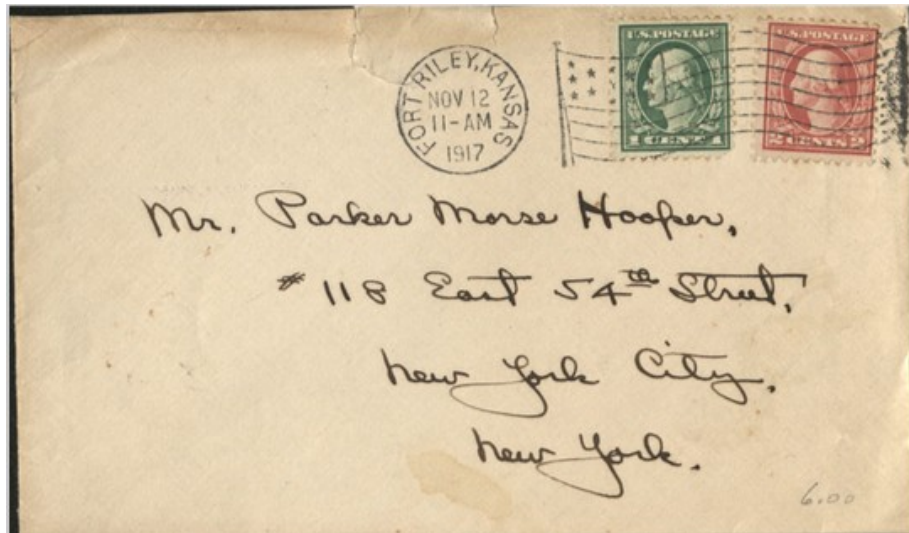 FORT RILEY, KANSAS
NOV 12
11-AM
1917
U.S. POSTAGE
1 CENT 1
U.S. POSTAGE
2 CENTS 2
Mr. Parker Morse Hooper,
# 118 East 54th Street,
New York City,
New York.
6.00